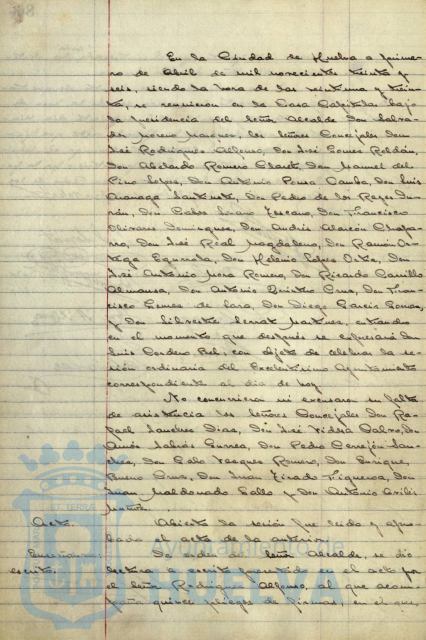 En la Ciudad de Huelva a prime-
ro de Abril de mil novecientos treinta y
seis, siendo la hora de las veintiuna y trein-
ta, se reunieron en la Casa Capitular bajo
la Presidencia del Señor Alcalde Don Salva-
dor Moreno Marquez, los señores Concejales Don
José Rodriguez Alfonso, Don José Gomez Roldán,
Don Abelardo Romero Claret, Don Manuel del
Pino Lopez, Don Antonio Ponsa Camba, Don Luis
Don Pedro de los Reyes
Don Francisco
Olivares Dominguez, Don Andrés Alarcón Chapa-
rro, Don José Real Magdaleno, Don Ramón Or-
tega Don Helenio Lopez Ortiz, Don
José Antonio Mora Romero, Don Ricardo Carrillo
Almansa, Don Antonio Quintero Cruz, Don Fran-
cisco Gomez de Lara, Don Diego García
y Don Silvestre Serrat Martinez, entrando
en el momento que después se expresará Don
Luis Cordero Bel, con objeto de celebrar la se-
sión ordinaria del Excelentísimo Ayuntamiento
correspondiente al día de hoy.
No concurrieron ni excusaron su falta
de asistencia los señores Concejales Don Ra-
fael Sanchez Diaz, Don José Vides Calvo, Don
Amós Sabrás Gurrea, Don Pedro Cerrejón San-
chez, Don Galo Vazquez Romero, Don Enrique
Bueno Cruz, Don Juan Tirado Figueroa, Don
Juan Maldonado y Don Antonio
Acta. Abierta la sesión fue leida y apro-
bada el acta de la anterior.
escrito. De orden del Señor Alcalde, se dio
lectura a escrito presentado en el acto por
el señor Rodriguez Alfonso, al que acom-
paña quince pliegos de firmas, en el que
Ayuntamiento de
HUELVA